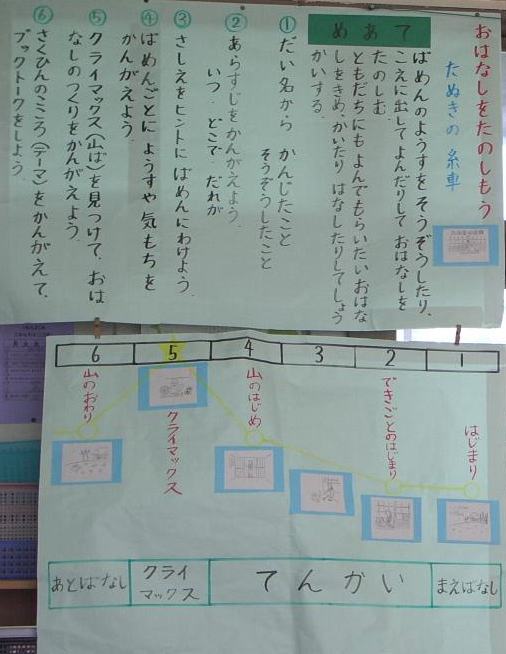 おはなしをたのしもう
たぬきの糸車
めあて
ばめんのようすをそうぞうしたり、
こえに出してよんだりして おはなしを
たのしむ。
ともだちにも よんでもらいたい おはな
しをきめ、かいたり はなしたりしてしょう
かいする。
① だい名から かんじたこと
そうぞうしたこと
② あらすじをかんがえよう。
いつ どこで だれが
③ さしえをヒントに ばめんにわけよう。
④ ばめんごとに ようすや 気もちを
かんがえよう。
⑤ クライマックス(山ば)を見つけて、おは
なしのつくりをかんがえよう。
⑥ さくひんのこころ(テーマ)をかんがえて、
ブックトークをしよう。
1
2
3
4
5
6
はじまり
できごとのはじまり
山のはじめ
クライマックス
山のおわり
まえばなし
てんかい
クライ
マックス
あとばなし